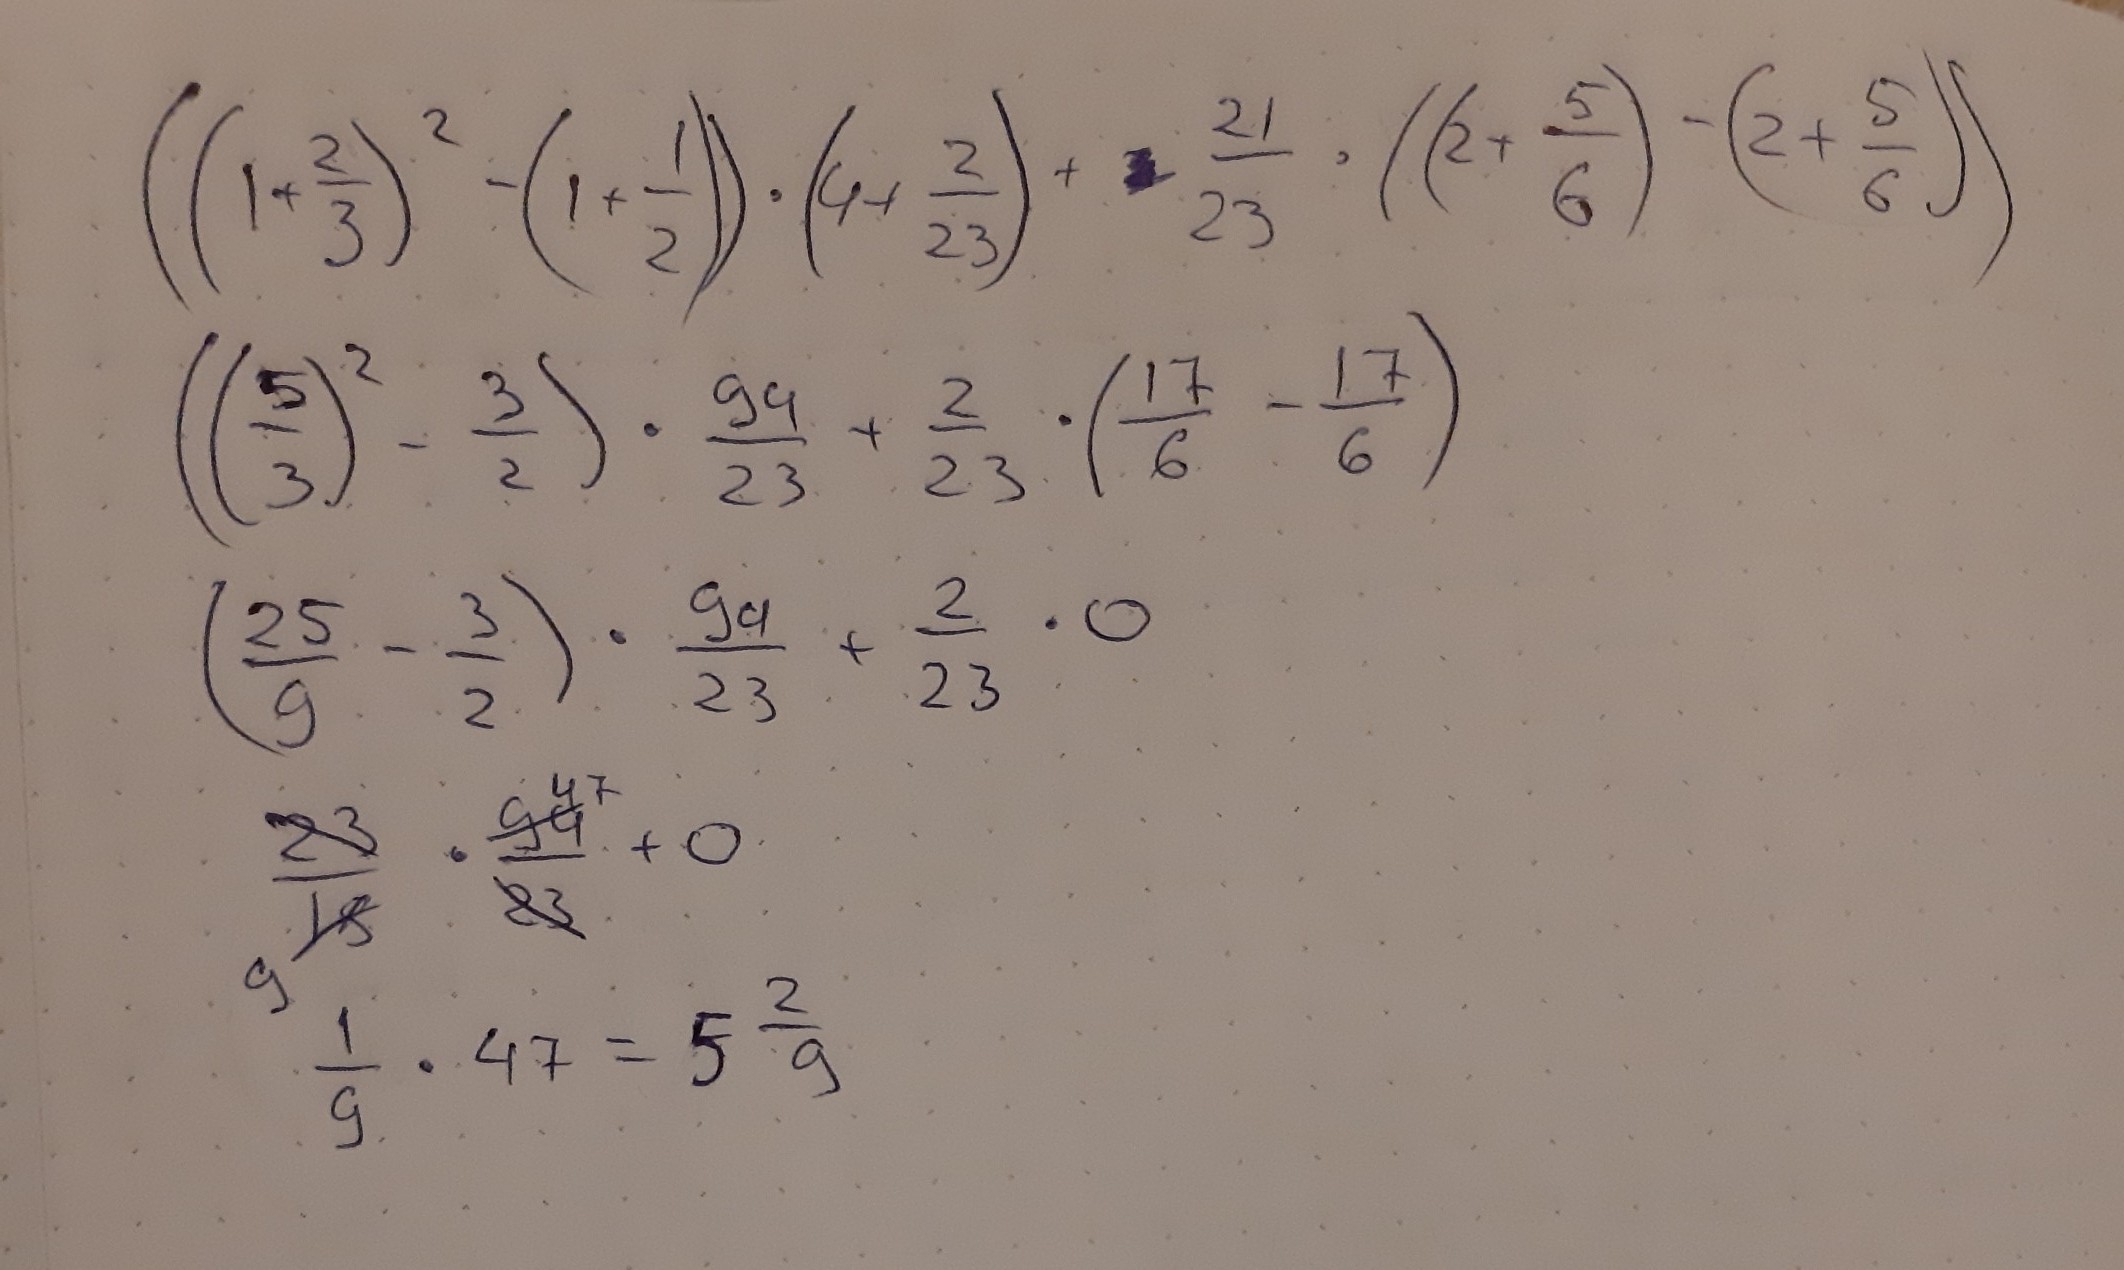 ((1+2/3)² - (1+1/2)) · (4+2/23) + 21/23 · ((2+5/6) - (2+5/6))
((5/3)² - 3/2) · 94/23 + 2/23 · (17/6 - 17/6)
(25/9 - 3/2) · 94/23 + 2/23 · 0
23/18 · 94/23 + 0
47
9
1/9 · 47 = 5 2/9